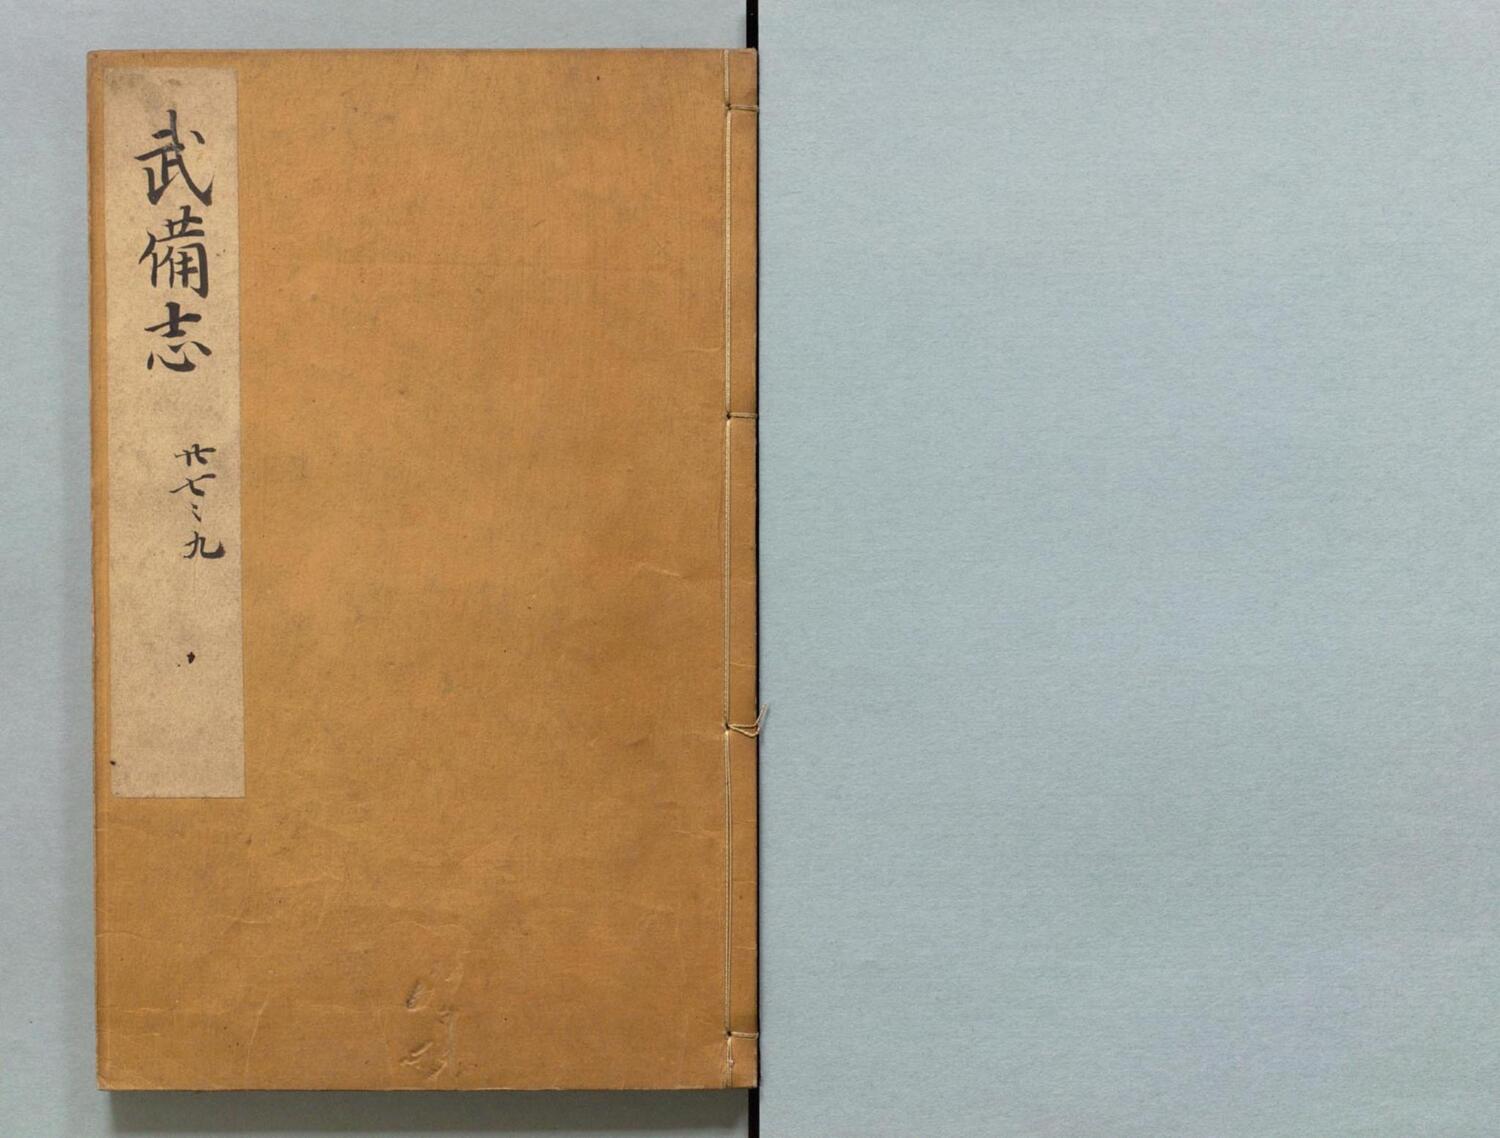 武備志
廿七ミ九